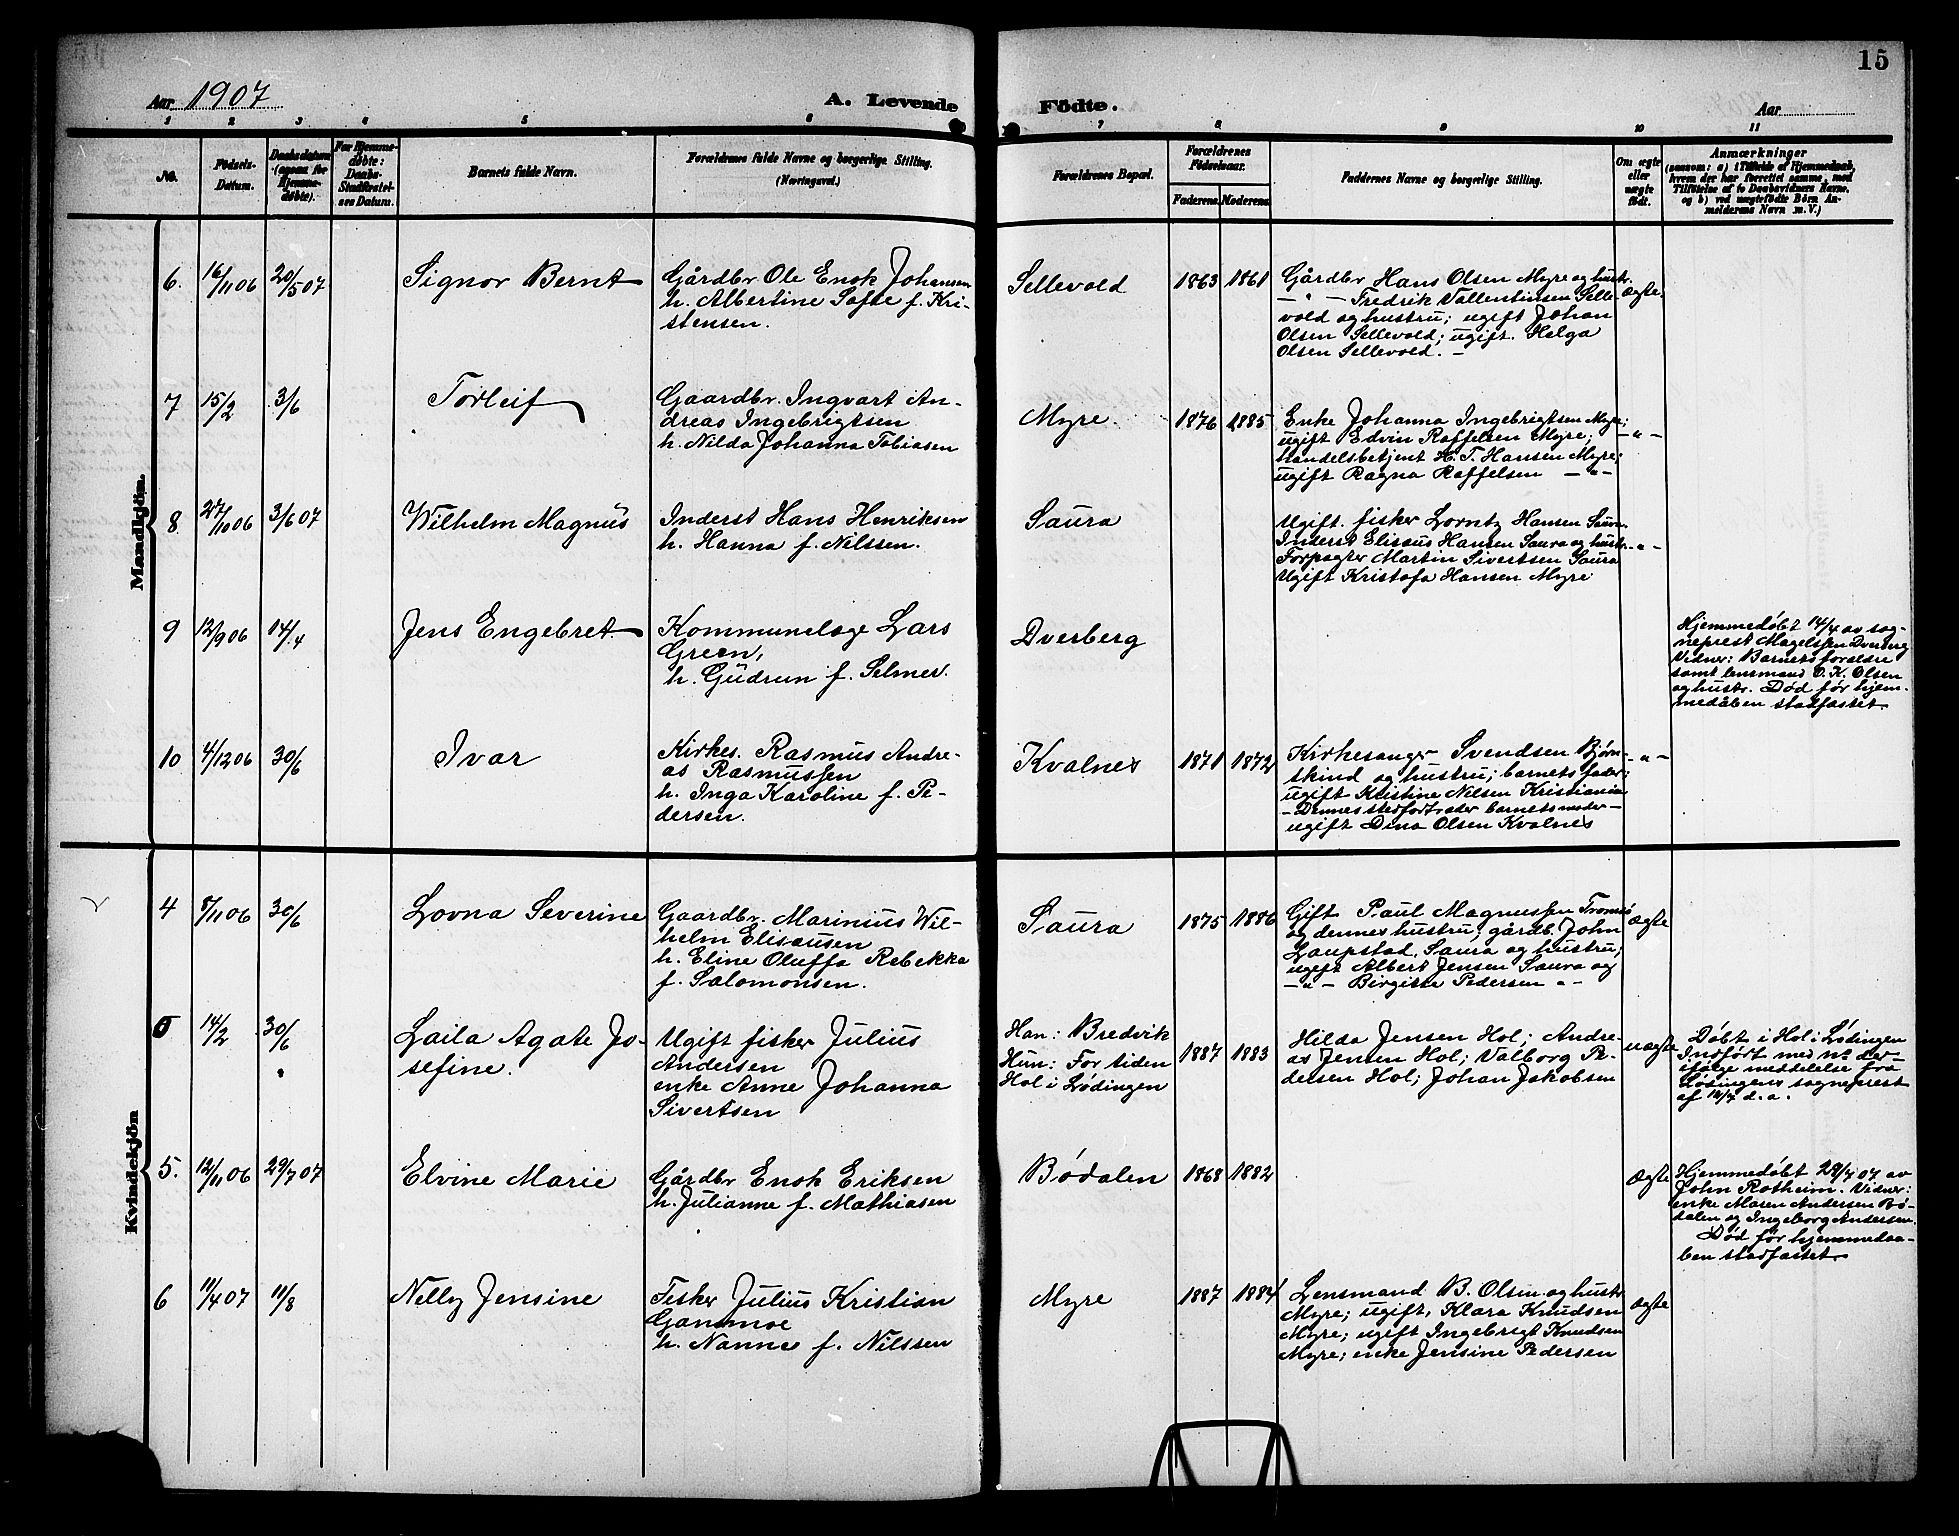 15
Aar 1907
A. Levende
Födte.
Aar
1 2 3 4 5 6 7 8 9 10 11
No.
Födsels-
Datum.
Daabsdatum
(ogsaa for
Hjemme-
døbte).
For Hjemme-
døbte:
Daabs-
Stadfæstel-
ses Datum.
Barnets fulde Navn.
Forældrenes fulde Navne og borgerlige Stilling.
(Næringsvei.)
Forældrenes Bopæl.
Forældrenes
Födselsaar.
Faderens. Moderens.
Faddernes Navne og borgerlige Stilling.
Om ægte
eller
uægte
født.
Anmærkninger
(saasom: a) i Tilfælde af Hjemmedaab,
hvem der har forrettet samme, med
Tilföielse af to Daabsvidners Navne.
og b) ved uægtefödte Börn An-
melderens Navn m. V.)
Mandkjön.
6. 16/11 06 20/5 07 Signor Bernt
Gårdbr Ole Enok Johansen
h. Albertine Sofie f. Kri-
stensen.
Sellevold 1863 1861
Gårdbr Hans Olsen Myre og hustr.
— " — Fredrik Vallentinsen Selle-
vold og hustru; ugift Johan
Olsen Sellevold; ugift. Helga
Olsen Sellevold. —
Ægte.
7 15/2 3/6 Torleif
Gaardbr. Ingvart An-
dreas Ingebrigtsen
h. Nilda Johanna Tobiasen
Myre. 1876 1885
Enke Johanna Ingebrigtsen Myre;
ugift Edvin Roffelsen Myre;
Handelsbetjent H. T. Hansen Myre;
ugift Ragna Roffelsen — " —
— " —
8 27/10 06 3/6 07 Wilhelm Magnus
Inderst Hans Henriksen
h. Hanna f. Nilssen.
Saura
Ugift. fisker Lorntz Hansen Saura
Inderst Elisæus Hansen Saura og hustr.
Forpagter Martin Sivertsen Saura
Ugift Kristofa Hansen Myre
— " —
9 12/9 06 14/4 Jens Engebret
Kommunelæge Lars
Green,
h. Gudrun f. Selmer.
Dverberg
Hjemmedøbt 14/4 av sog-
neprest Magelssen Dverberg
Vidner: Barnets forældre
samt lensmand O. K. Olsen
og hustr. Død før hjem-
medåben stadfæstet
10 4/12 06 30/6 Ivar
Kirkes. Rasmus Andre-
as Rasmussen
h. Inga Karoline f. Pe-
dersen.
Kvalnes 1871 1872
Kirkesanger Svendsen Bjørn-
skind og hustru; barnets fader;
ugift Kristine Nilsen Kristiania
— Dennes stedfortræder barnets moder —
ugift Dina Olsen Kvalnes
— " —
Kvindekjön
4 8/11 06 30/6 Lovna Severine
Gaardbr. Marinius Wil-
helm Elisæusen
h. Eline Oluffa Rebekka
f. Salomonsen.
Saura 1875 1886
Gift Paul Magnussen Tromsø
og dennes hustru; gårdb. John
Laupstad, Saura og hustru;
ugift Albert Jensen Saura og
— " — Birgitte Pedersen — " —
Ægte
5 14/2 30/6 Laila Agate Jo-
sefine.
Ugift fisker Julius
Andersen
enke Anne Johanna
Sivertsen
Han: Bredvik
Hun: For tiden
Hol i Lødingen
1887 1883
Hilda Jensen Hol; Andre-
as Jensen Hol; Valborg Pe-
dersen Hol; Johan Jakobsen
uægte
Døbt i Hol i Lødingen
Indført med nr der-
ifølge meddelelse fra
Lødingens sogneprest
af 14/4 d. a.
5. 12/11 06 29/7 07 Elvine Marie
Gårdbr Enok Eriksen
h. Julianne f. Mathiasen
Bødalen 1868 1882
Ægte
Hjemmedøbt 29/7 07 av
John Rotheim. Vidner:
enke Maren Andersen Bø-
dalen og Ingeborg Andersen.
Død før hjemmedaa-
ben stadfæstet
6 11/4 07 11/8 Nelly Jensine
Fisker Julius Kristian
Gammoe
h. Nanna f. Nilssen
Myre 1887 1884
Lensmand B. Olsen og hustr
Myre; ugift, Klara Knudsen
Myre; ugift Ingebrigt Knudsen
Myre; enke Jensine Pedersen
Ægte